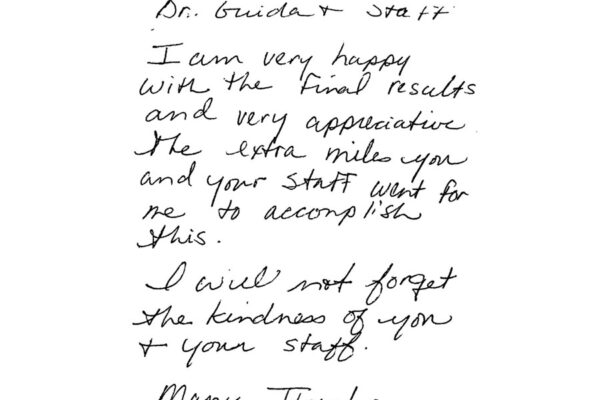 Dr. Guida + Staff
I am very happy
with the final results
and very appreciative
the extra miles you
and your staff went for
me to accomplish
this.
I will not forget
the kindness of you
+ your staff.
Many Thanks